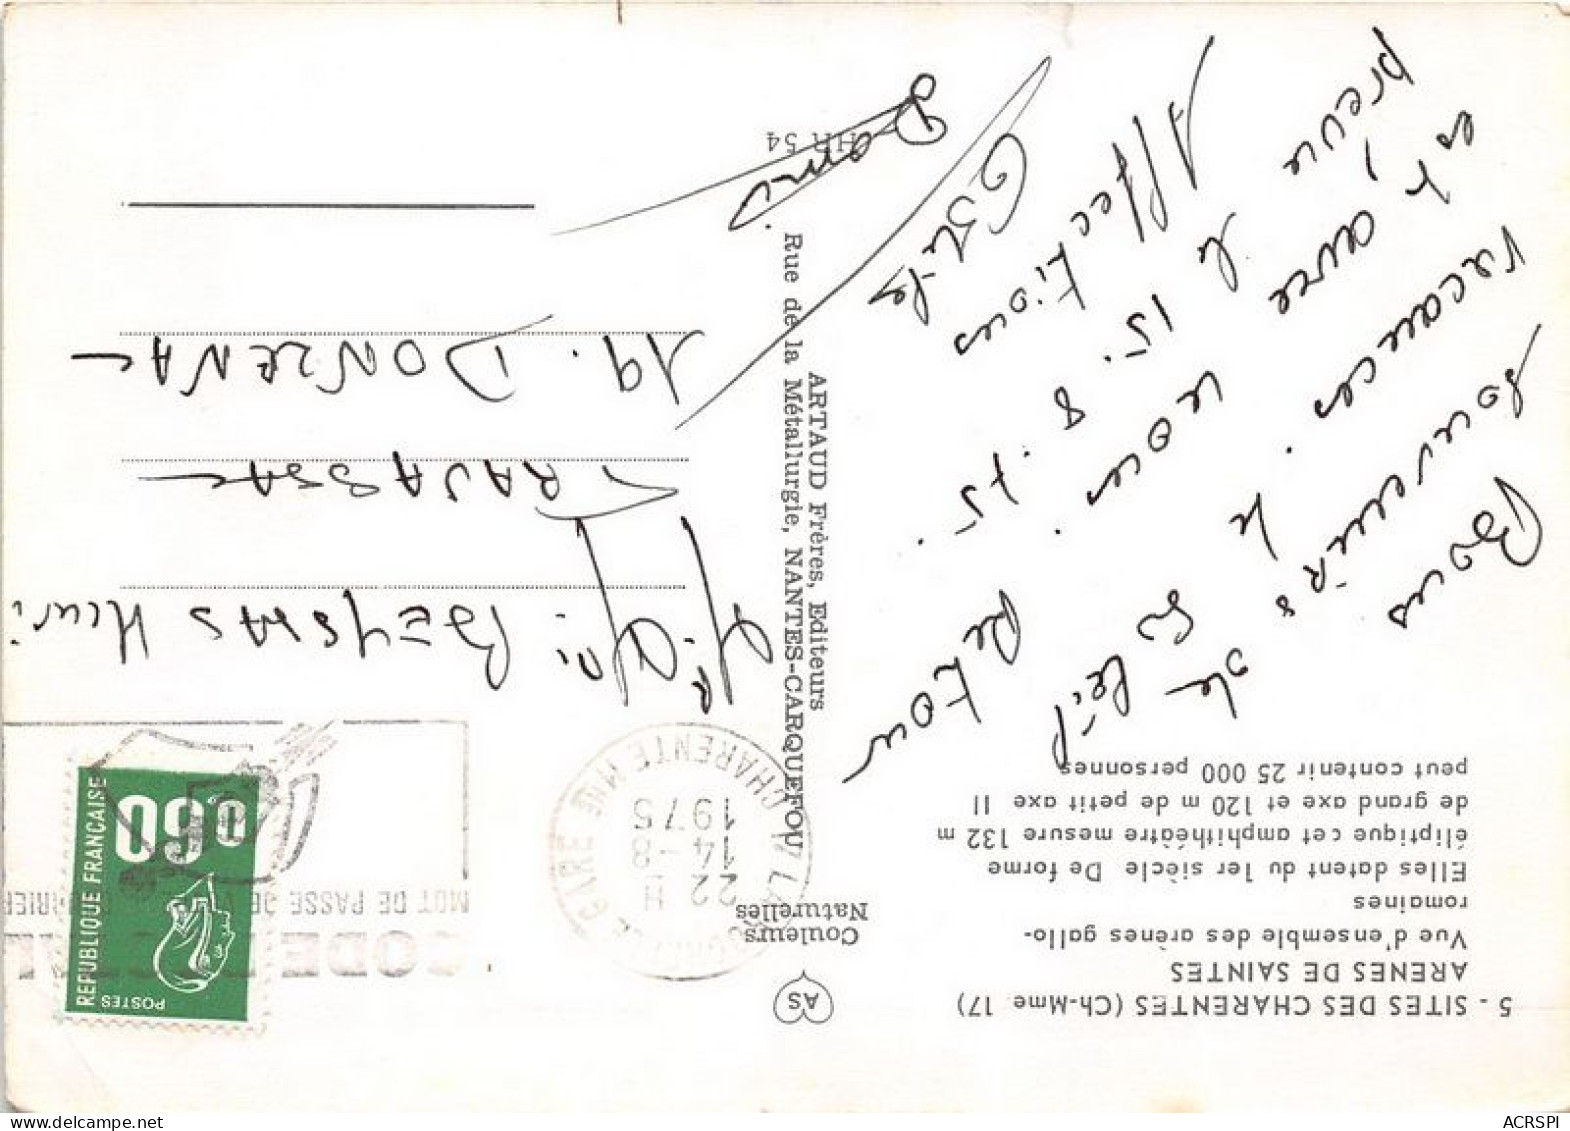 5 - SITES DES CHARENTES (Ch-Mme. 17)
ARENES DE SAINTES
Vue d'ensemble des arènes gallo-
romaines
Elles datent du 1er siècle De forme
éliptique cet amphithéâtre mesure 132 m
de grand axe et 120 m de petit axe Il
peut contenir 25 000 personnes
Bons
souvenirs de
vacances. Le Soleil
est avec nous. Retour
prévu le 15.8.75.
Affectious
Gilles
Denis
AS
Couleurs
Naturelles
ARTAUD Frères, Editeurs
Rue de la Métallurgie, NANTES-CARQUEFOU
HR 54
CODE POSTAL
MOT DE PASSE DE VOTRE COURRIER
17 LA ROCHELLE GARE
CHARENTE MME
22 H
14-8
1975
0,60
REPUBLIQUE FRANÇAISE
POSTES
Mr. Me. BEYSSAS Henri
TRAVASSAC
19. DONZENAC
ACRSPI